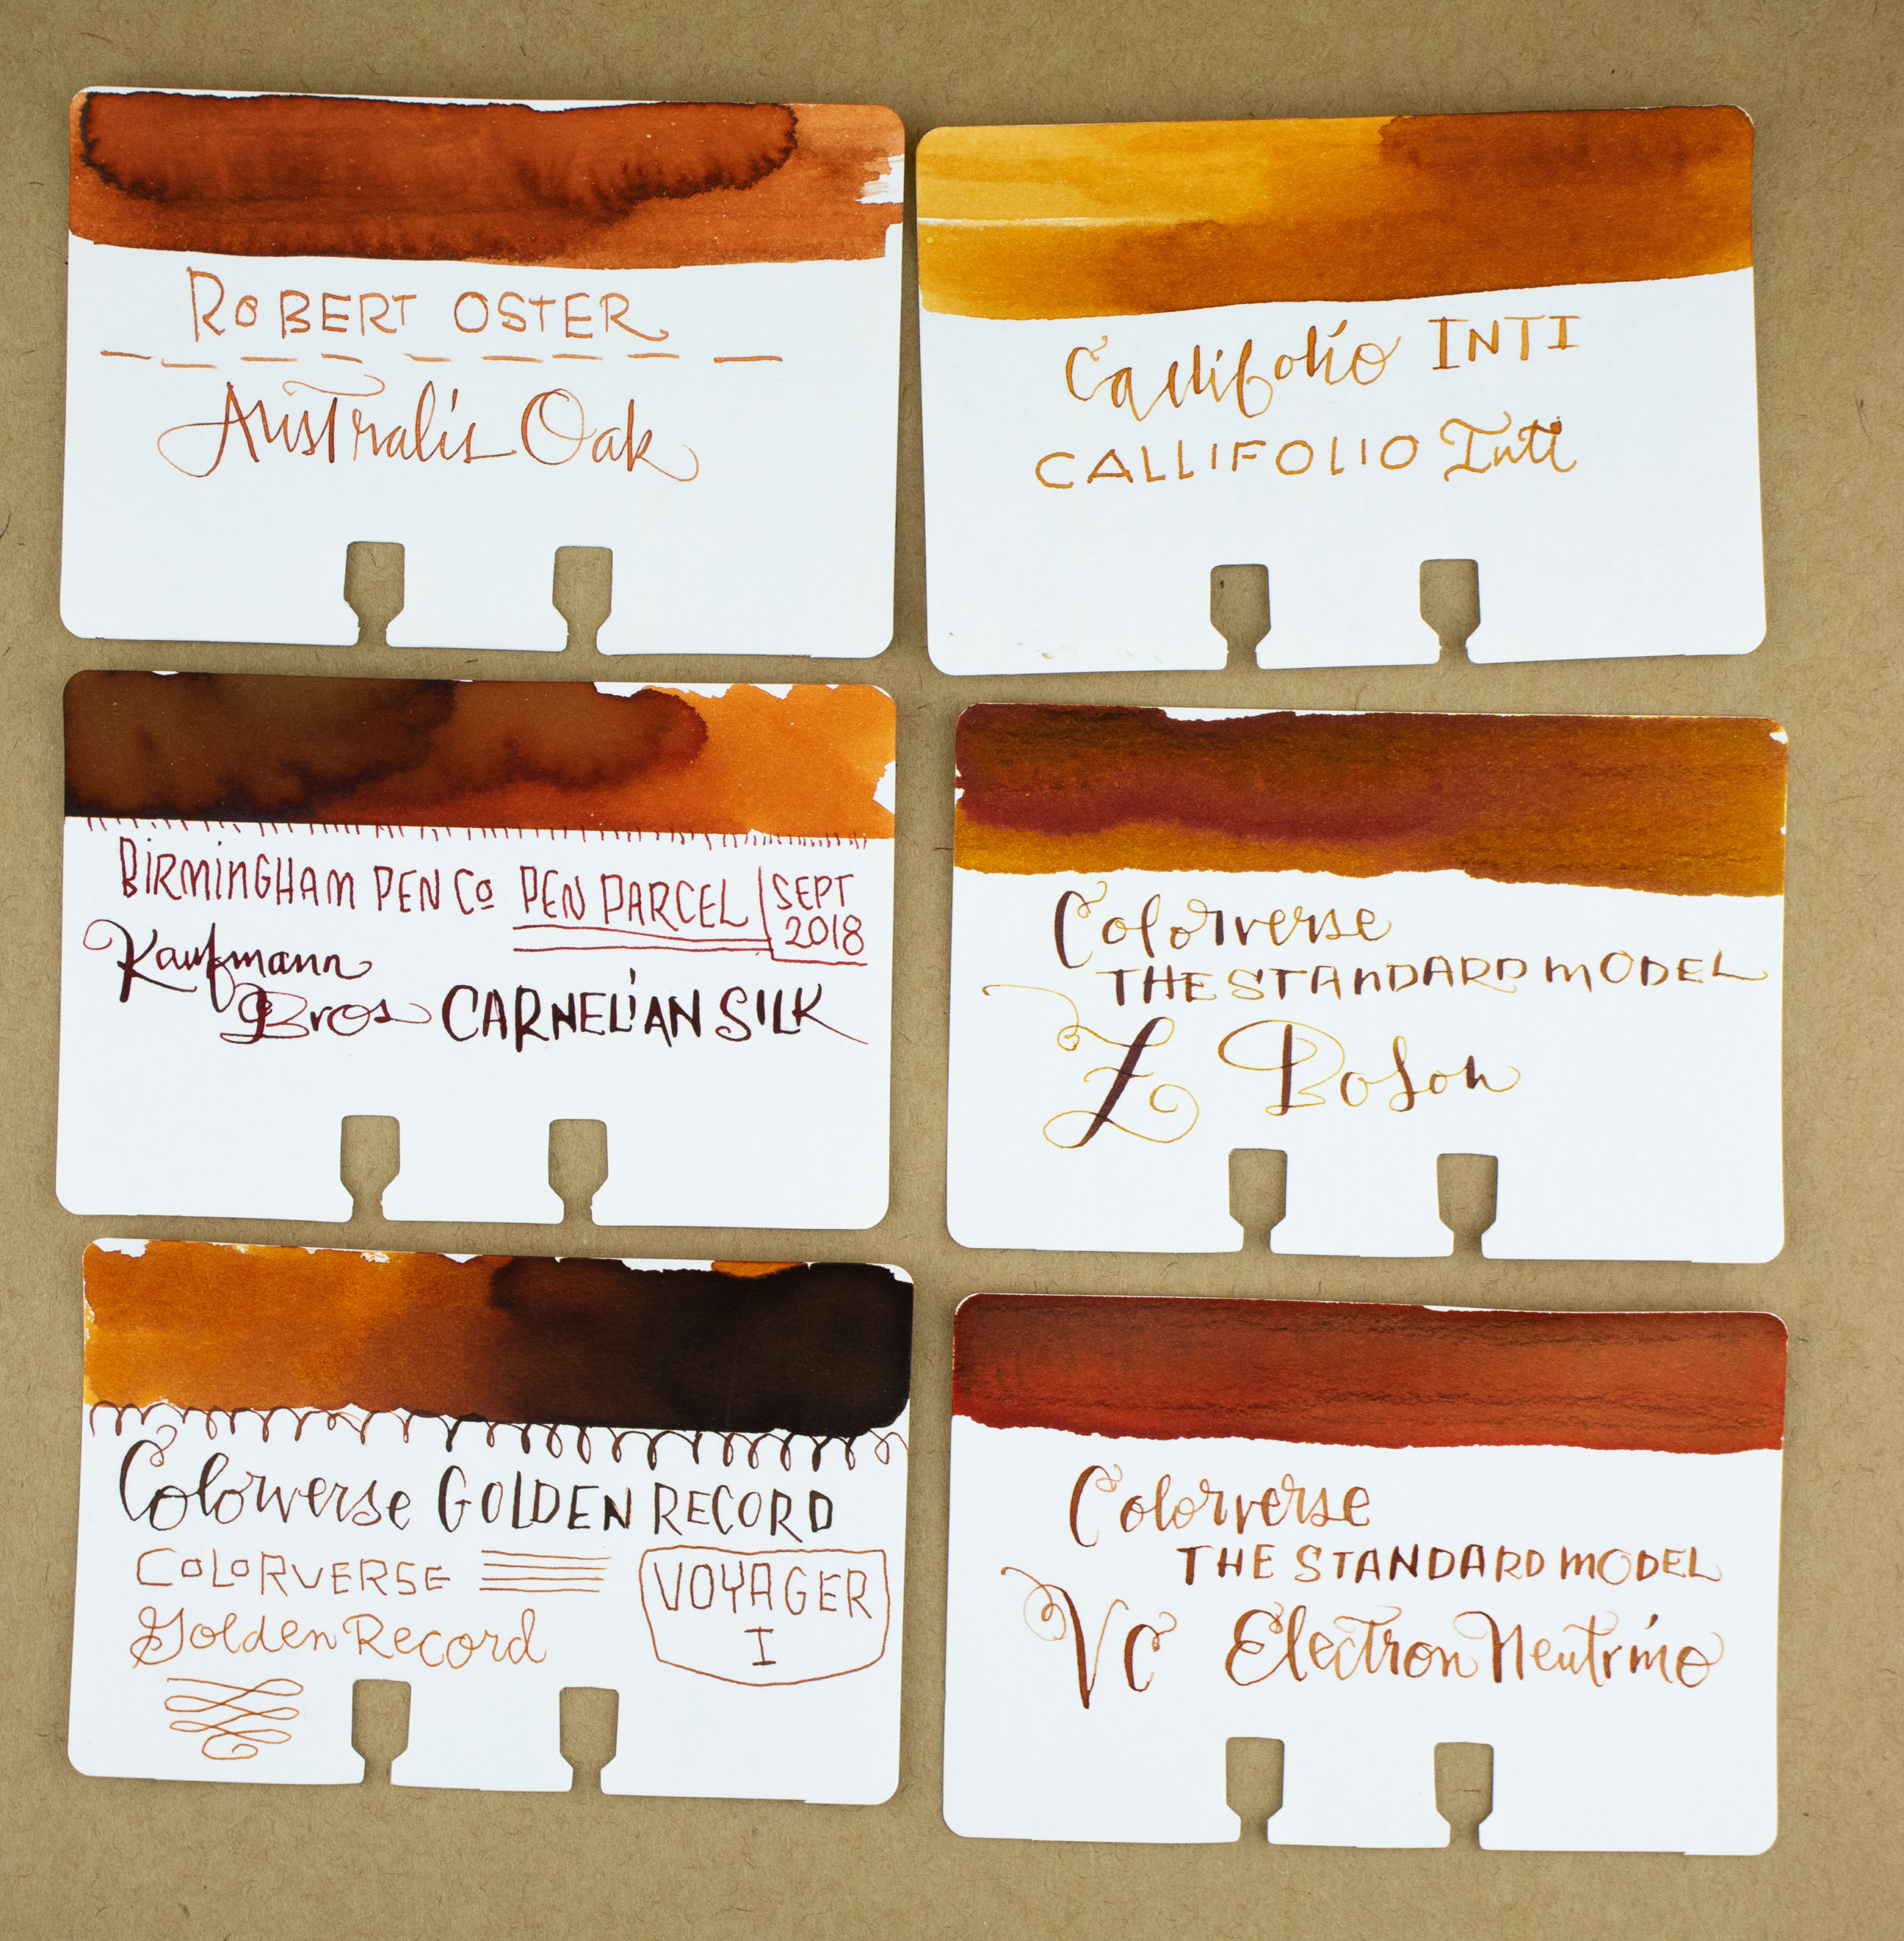 ROBERT OSTER
Australis Oak
Callifolio INTI
CALLIFOLIO Inti
BIRMINGHAM PEN Co PEN PARCEL SEPT 2018
Kaufmann
Bros CARNELIAN SILK
Colorverse
THE STANDARD MODEL
Z Boson
Colorverse GOLDEN RECORD
COLORVERSE
Golden Record
VOYAGER
I
Colorverse
THE STANDARD MODEL
VC Electron Neutrino